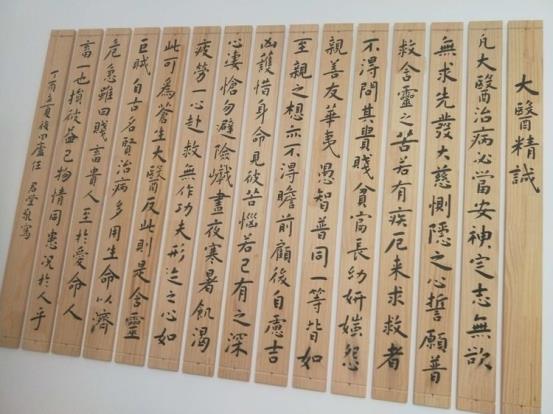 大醫精誠
凡大醫治病必當安神定志無欲
無求先發大慈惻隱之心誓願普
救含靈之苦若有疾厄来求救者
不得問其貴賤貧富長幼妍媸怨
親善友華夷愚智普同一等皆如
至親之想亦不得瞻前顧後自慮吉
凶護惜身命見彼苦惱若己有之深
心凄愴勿避險巇晝夜寒暑飢渴
疲勞一心赴救無作功夫形迹之心如
此可為蒼生大醫反此則是含靈
巨賊自古名賢治病多用生命以濟
危急雖曰賤畜貴人至於愛命人
畜一也損彼益己物情同患況於人乎
丁酉夏後